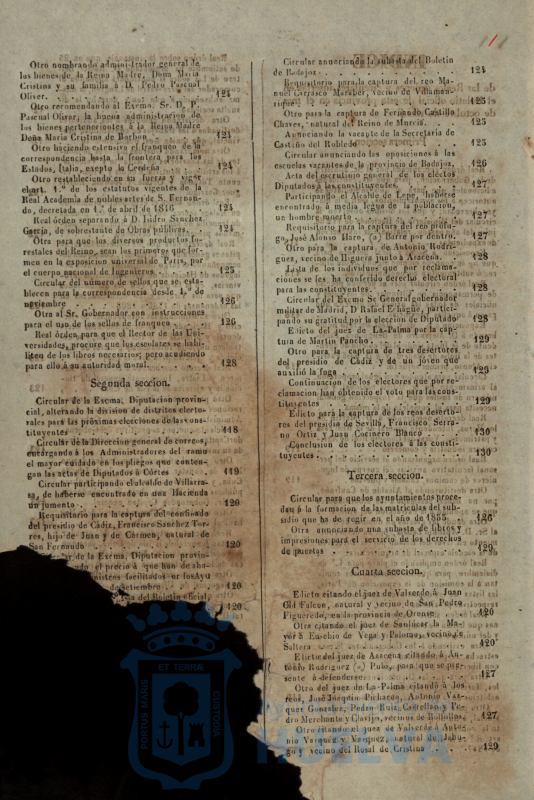 Otro nombrando administrador general de
los bienes de la Reina Madre, Doña Maria
Cristina y su familia á D. Pedro Pascual
Oliver. 124
Otro recomendando al Excmo. Sr. D. P.
Pascual Oliver, la buena administracion de
los bienes pertenecientes á la Reina Madre
Doña Maria Cristina de Borbon 124
Otro haciendo estensivo el franqueo de la
correspondencia hasta la frontera para los
Estados, Italia, exepto la Cerdeña 124
Otro restableciendo en su fuerza y vigor
el art. 1.º de los estatutos vigentes de la
Real Academia de nobles artes de S. Fernan-
do, decretada en 1.º de abril de 1816 124
Real órden separando á D. Isidro Sanchez
Garcia, de sobrestante de Obras públicas. 124
Otra para que los diversos productos fo-
restales del Reino, sean los primeros que for-
men en la exposicion universal de Paris, por
el cuerpo nacional de Ingenieros 125
Circular del número de sellos que se esta-
blecen para la correspondencia desde 1.º de
noviembre 126
Otra al Sr. Gobernador con instrucciones
para el uso de los sellos de franqueo 126
Real órden para que el Rector de las Uni-
versidades, procure que los escolares se habi-
liten de los libros necesarios; pero acudiendo
para ello á su autoridad moral. 128
Segunda seccion.
Circular de la Excma. Diputacion provin-
cial, alterando la division de distritos electo-
rales para las próximas elecciones de las cons-
tituyentes 118
Circular de la Direccion general de correos,
encargando á los Administradores del ramo
el mayor cuidado en los pliegos que conten-
gan las actas de Diputados á Córtes 119
Circular participando el alcalde de Villarra-
sa, de haberse encontrado en una Hacienda
un jumento 120
Requisitorio para la captura del confinado
del presidio de Cádiz, Francisco Sanchez Tor-
res, hijo de Juan y de Cármen, natural de
San Fernando 120
de la Excma. Diputacion provin-
el precio á que han de aba-
facilitados por los Ayu
setiembre 120
del Boletin oficial,
120
Circular anunciando la subasta del Boletin
de Badajoz 124
Requisitorio para la captura del reo Ma-
nuel Carrasco Maraber, vecino de Villaman-
rique 125
Otro para la captura de Fernando Castillo
Chaves, natural del Reino de Marruecos 125
Anunciando la vacante de la Secretaria de
Castaño del Robledo 125
Circular anunciando las oposiciones á las
escuelas vacantes de la provincia de Badajoz. 126
Acta del escrutinio general de los electos
Diputados á las constituyentes. 127
Participando el Alcalde de Lepe, haberse
encontrado á media legua de la poblacion,
un hombre muerto 127
Requisitorio para la captura del reo prófu-
go, José Alonso Haro, (a) Barre por dentro. 127
Otro para la captura de Antonio Rodri-
guez, vecino de Higuera junto á Aracena. 128
Lista de los individuos que por reclama-
ciones se les ha conferido derecho electoral
para las constituyentes. 128
Circular del Excmo Sr General gobernador
militar de Madrid, D Rafael Echagüe, partici-
pando su gratitud por la eleccion de Diputado 128
Edicto del juez de La-Palma por la cap-
tura de Martin Pancho. 129
Otro para la captura de tres desertores
del presidio de Cádiz y de un jóven que
auxilió la fuga 129
Continuacion de los electores que por re-
clamacion han obtenido el voto para las cons-
tituyentes 129
Edicto para la captura de los reos deserto-
res del presidio de Sevilla, Francisco Serra-
no Ortiz y Juan Cocinero Blanco 130
Conclusion de los electores á las consti-
tuyentes. 130
Tercera seccion.
Circular para que los ayuntamientos proce-
dan á la formacion de las matrículas del sub-
sidio que ha de regir en el año de 1855 126
Otra anunciando una subasta de libros y
impresiones para el servicio de los derechos
de puertas 129
Cuarta seccion.
Edicto citando el juez de Valverde á Juan
Gil Falcon, natural y vecino de San Pedro
Figueredo, en la provincia de Orense 120
Otra citando el juez de Sanlúcar la Ma-
yor á Eusebio de Vega y Palomo, vecino de
Saltera 120
Edicto del juez de Aracena citando á An-
tonio Rodriguez (a) Pulo, para que se pre-
sente á defenderse 127
Otro del juez de La-Palma citando á los
reos, José Joaquin Pichardo, Antonio Vaz-
quez Gonzalez, Pedro Ruiz Castellano y Pe-
dro Merchante y Clavijo, vecinos de Bollullos. 127
Otro citando el juez de Valverde á Anto-
nio Vazquez y Vazquez, natural de Jabu-
go y vecino del Rosal de Cristina 129
ET TERRÆ
PORTUS MARIS
CUSTODIA
HUELVA